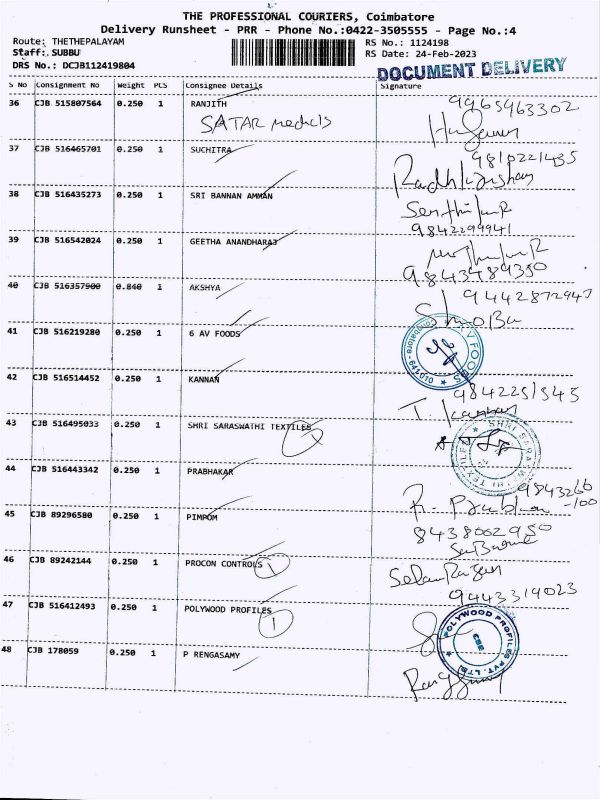 THE PROFESSIONAL COURIERS, Coimbatore
Delivery Runsheet - PRR - Phone No.:0422-3505555 - Page No.:4
Route: THETHEPALAYAM RS No.: 1124198
Staff: SUBBU RS Date: 24-Feb-2023
DRS No.: DCJB112419804
DOCUMENT DELIVERY
S No Consignment No Weight PCS Consignee Details Signature
36 CJB 515807564 0.250 1 RANJITH 9965963302
SATAR medicals
37 CJB 516465701 0.250 1 SUCHITRA 9810221435
38 CJB 516435273 0.250 1 SRI BANNAN AMMAN
9842299941
39 CJB 516542024 0.250 1 GEETHA ANANDHARAJ
9843489350
40 CJB 516357900 0.840 1 AKSHYA 9442872947
41 CJB 516219280 0.250 1 6 AV FOODS
V FOODS
Coimbatore - 641010
42 CJB 516514452 0.250 1 KANNAN 9842251545
T. Kannan
43 CJB 516495033 0.250 1 SHRI SARASWATHI TEXTILES
SHRI SARASWATHI TEXTILES
44 CJB 516443342 0.250 1 PRABHAKAR 9843266
-100
45 CJB 89296580 0.250 1 PIMPOM 8438062950
46 CJB 89242144 0.250 1 PROCON CONTROLS 1
9443319023
47 CJB 516412493 0.250 1 POLYWOOD PROFILES
1
POLYWOOD PROFILES PVT. LTD.
CBE
48 CJB 178059 0.250 1 P RENGASAMY